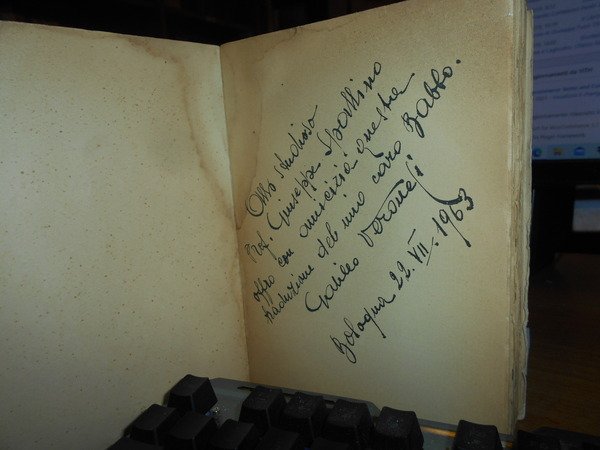 Allo studioso
Prof. Giuseppe Spallino
offro con amicizia questa
traduzione del mio caro Babbo.
Galileo Veronesi
Bologna 22.VII.1963